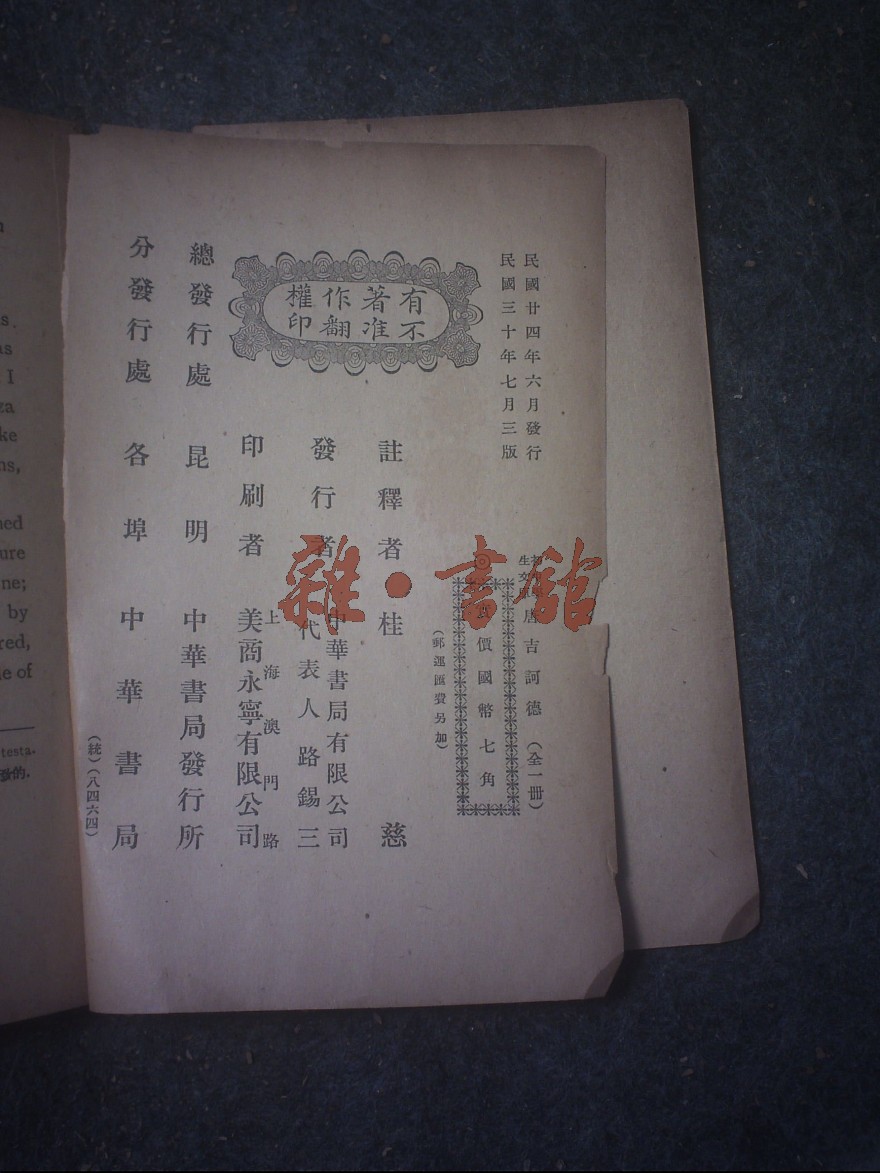 民國廿四年六月發行
民國三十年七月三版
唐吉訶德（全一冊）
價國幣七角
（郵運匯費另加）
有著作權
不准翻印
註釋者 桂慈
發行者 中華書局有限公司
代表人路錫三
印刷者 上海澳門路
美商永寧有限公司
總發行處 昆明 中華書局發行所
分發行處 各埠 中華書局
（統）（八四六四）
雜·書館
s.
as
I
za
ke
ns,
ned
ure
ne;
by
red,
le of
testa.
發的.